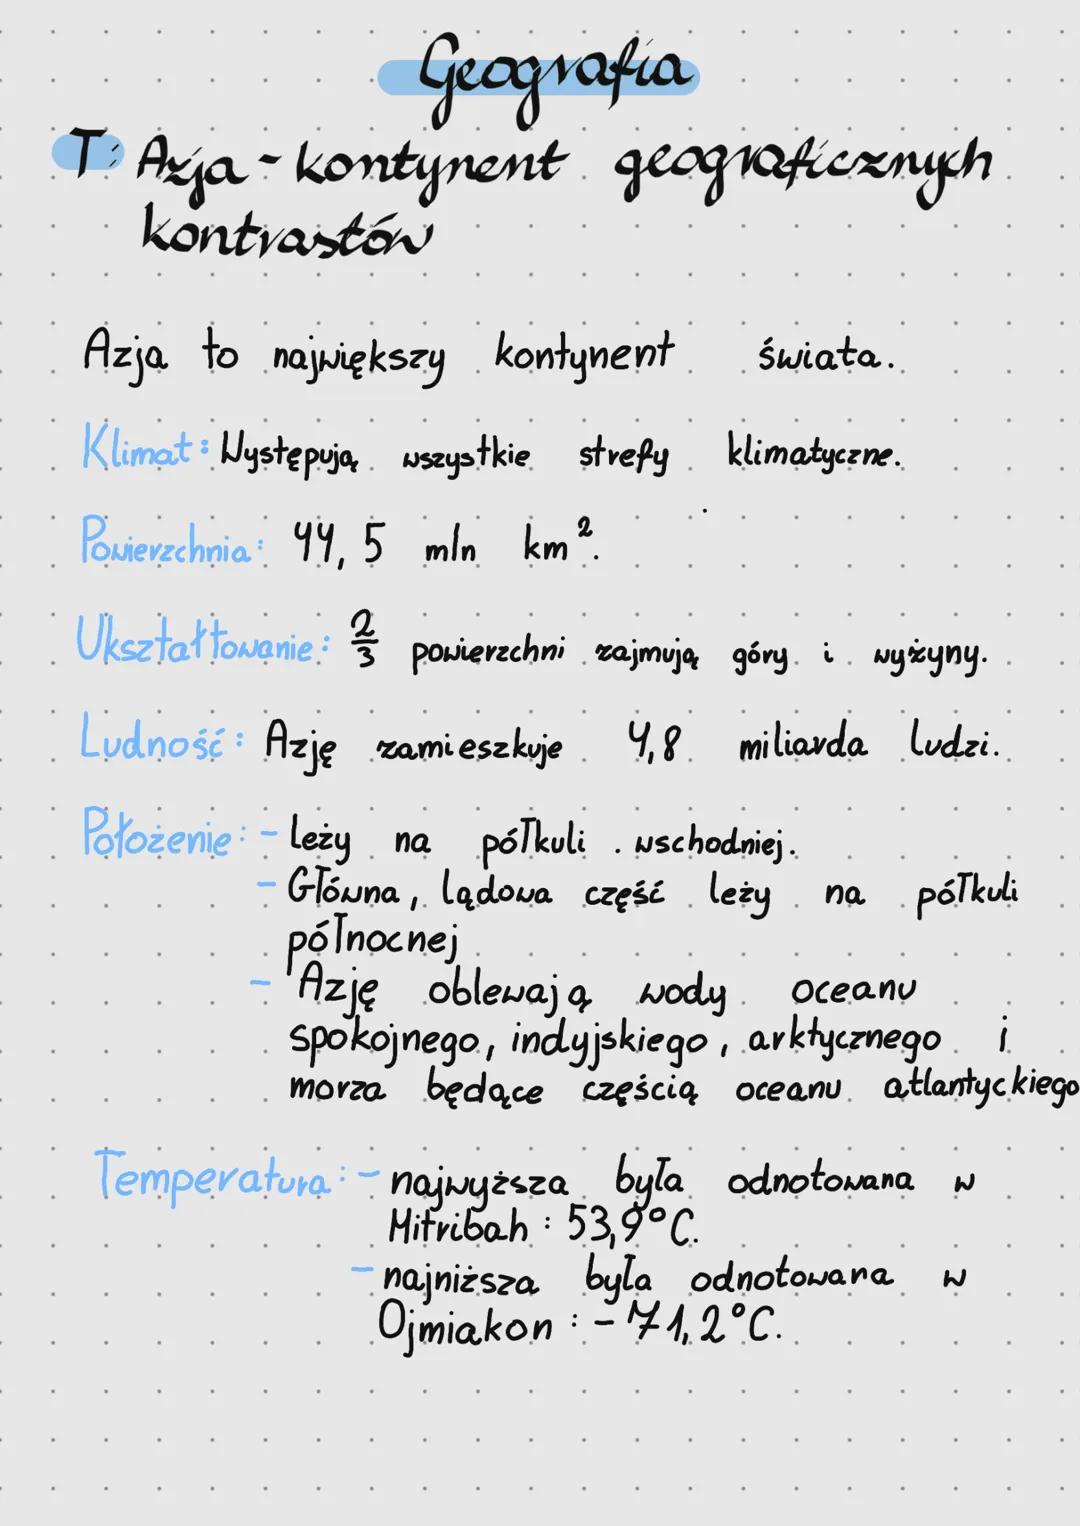 Geografia
T: Azja - kontynent geograficznych
kontrastów
Azja to największy kontynent świata.
Klimat: Występują wszystkie strefy klimatyczne.
Powierzchnia: 44,5 mln km².
Ukształtowanie: 2/3 powierzchni zajmują góry i wyżyny.
Ludność: Azję zamieszkuje 4,8 miliarda ludzi.
Położenie: - leży na półkuli wschodniej.
- Główna, lądowa część leży na półkuli
północnej
- Azję oblewają wody oceanu
spokojnego, indyjskiego, arktycznego i
morza będące częścią oceanu atlantyckiego
Temperatura: - najwyższa była odnotowana w
Mitribah: 53,9°C.
- najniższa była odnotowana w
Ojmiakon: -71,2°C.